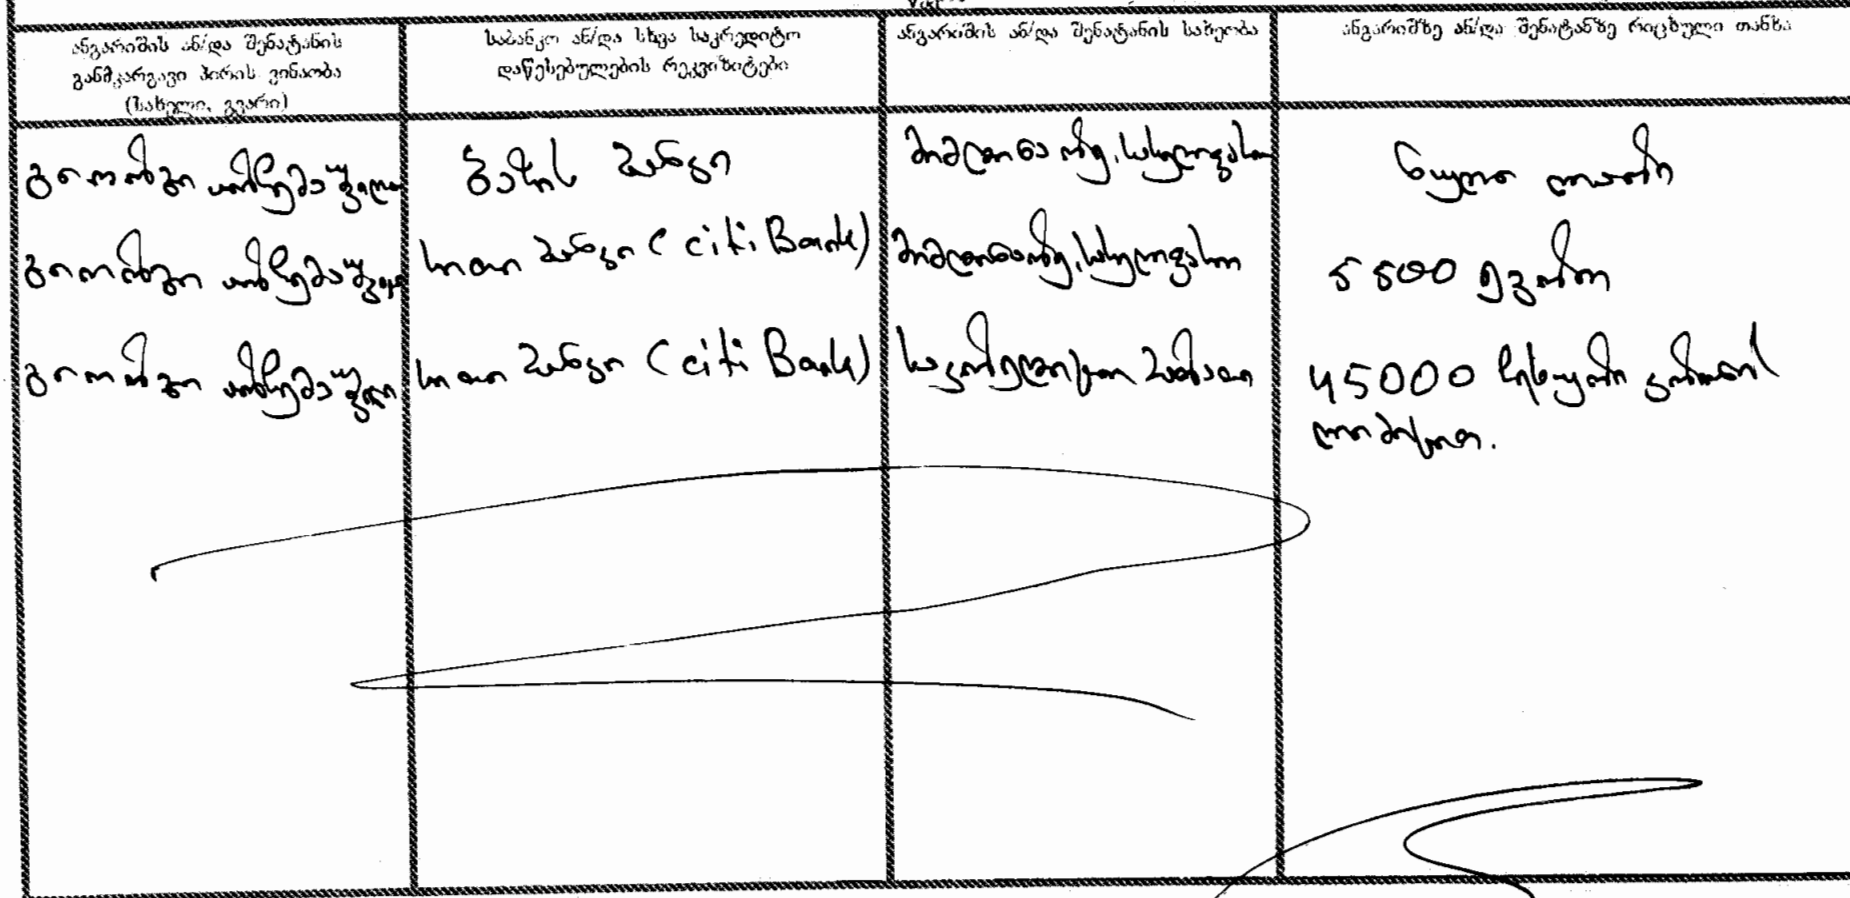 ანგარიშის ან/და შენატანის
განმკარგავი პირის ვინაობა
(სახელი, გვარი)
საბანკო ან/და სხვა საკრედიტო
დაწესებულების რეკვიზიტები
ანგარიშის ან/და შენატანის სახეობა
ანგარიშზე ან/და შენატანზე რიცხული თანხა
გიორგი ბაზის ბანკი მიმდინარე, სახელფასო ნული ლარი
გიორგი სითი ბანკი (citi Bank) მიმდინარე, სახელფასო 5500 ევრო
გიორგი სითი ბანკი (citi Bank) საკრედიტო ბარათი 45000 ჩეხური კრონის
ლიმიტით.